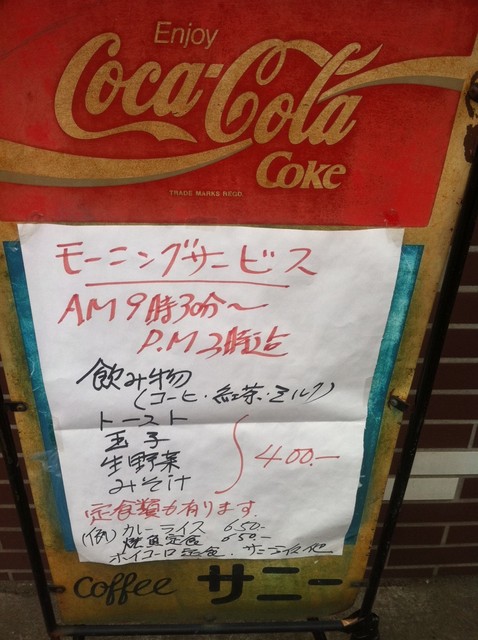 Enjoy
Coca-Cola
Coke
TRADE MARKS REGD.
モーニングサービス
AM9時30分〜
P.M3時迄
飲み物
(コーヒ・紅茶・ミルク)
トースト
玉子
生野菜
みそ汁
400.-
定食類も有ります.
(例) カレーライス 650-
焼魚定食 650.-
ホイコーロ定食. サニーライス他
Coffee サニー